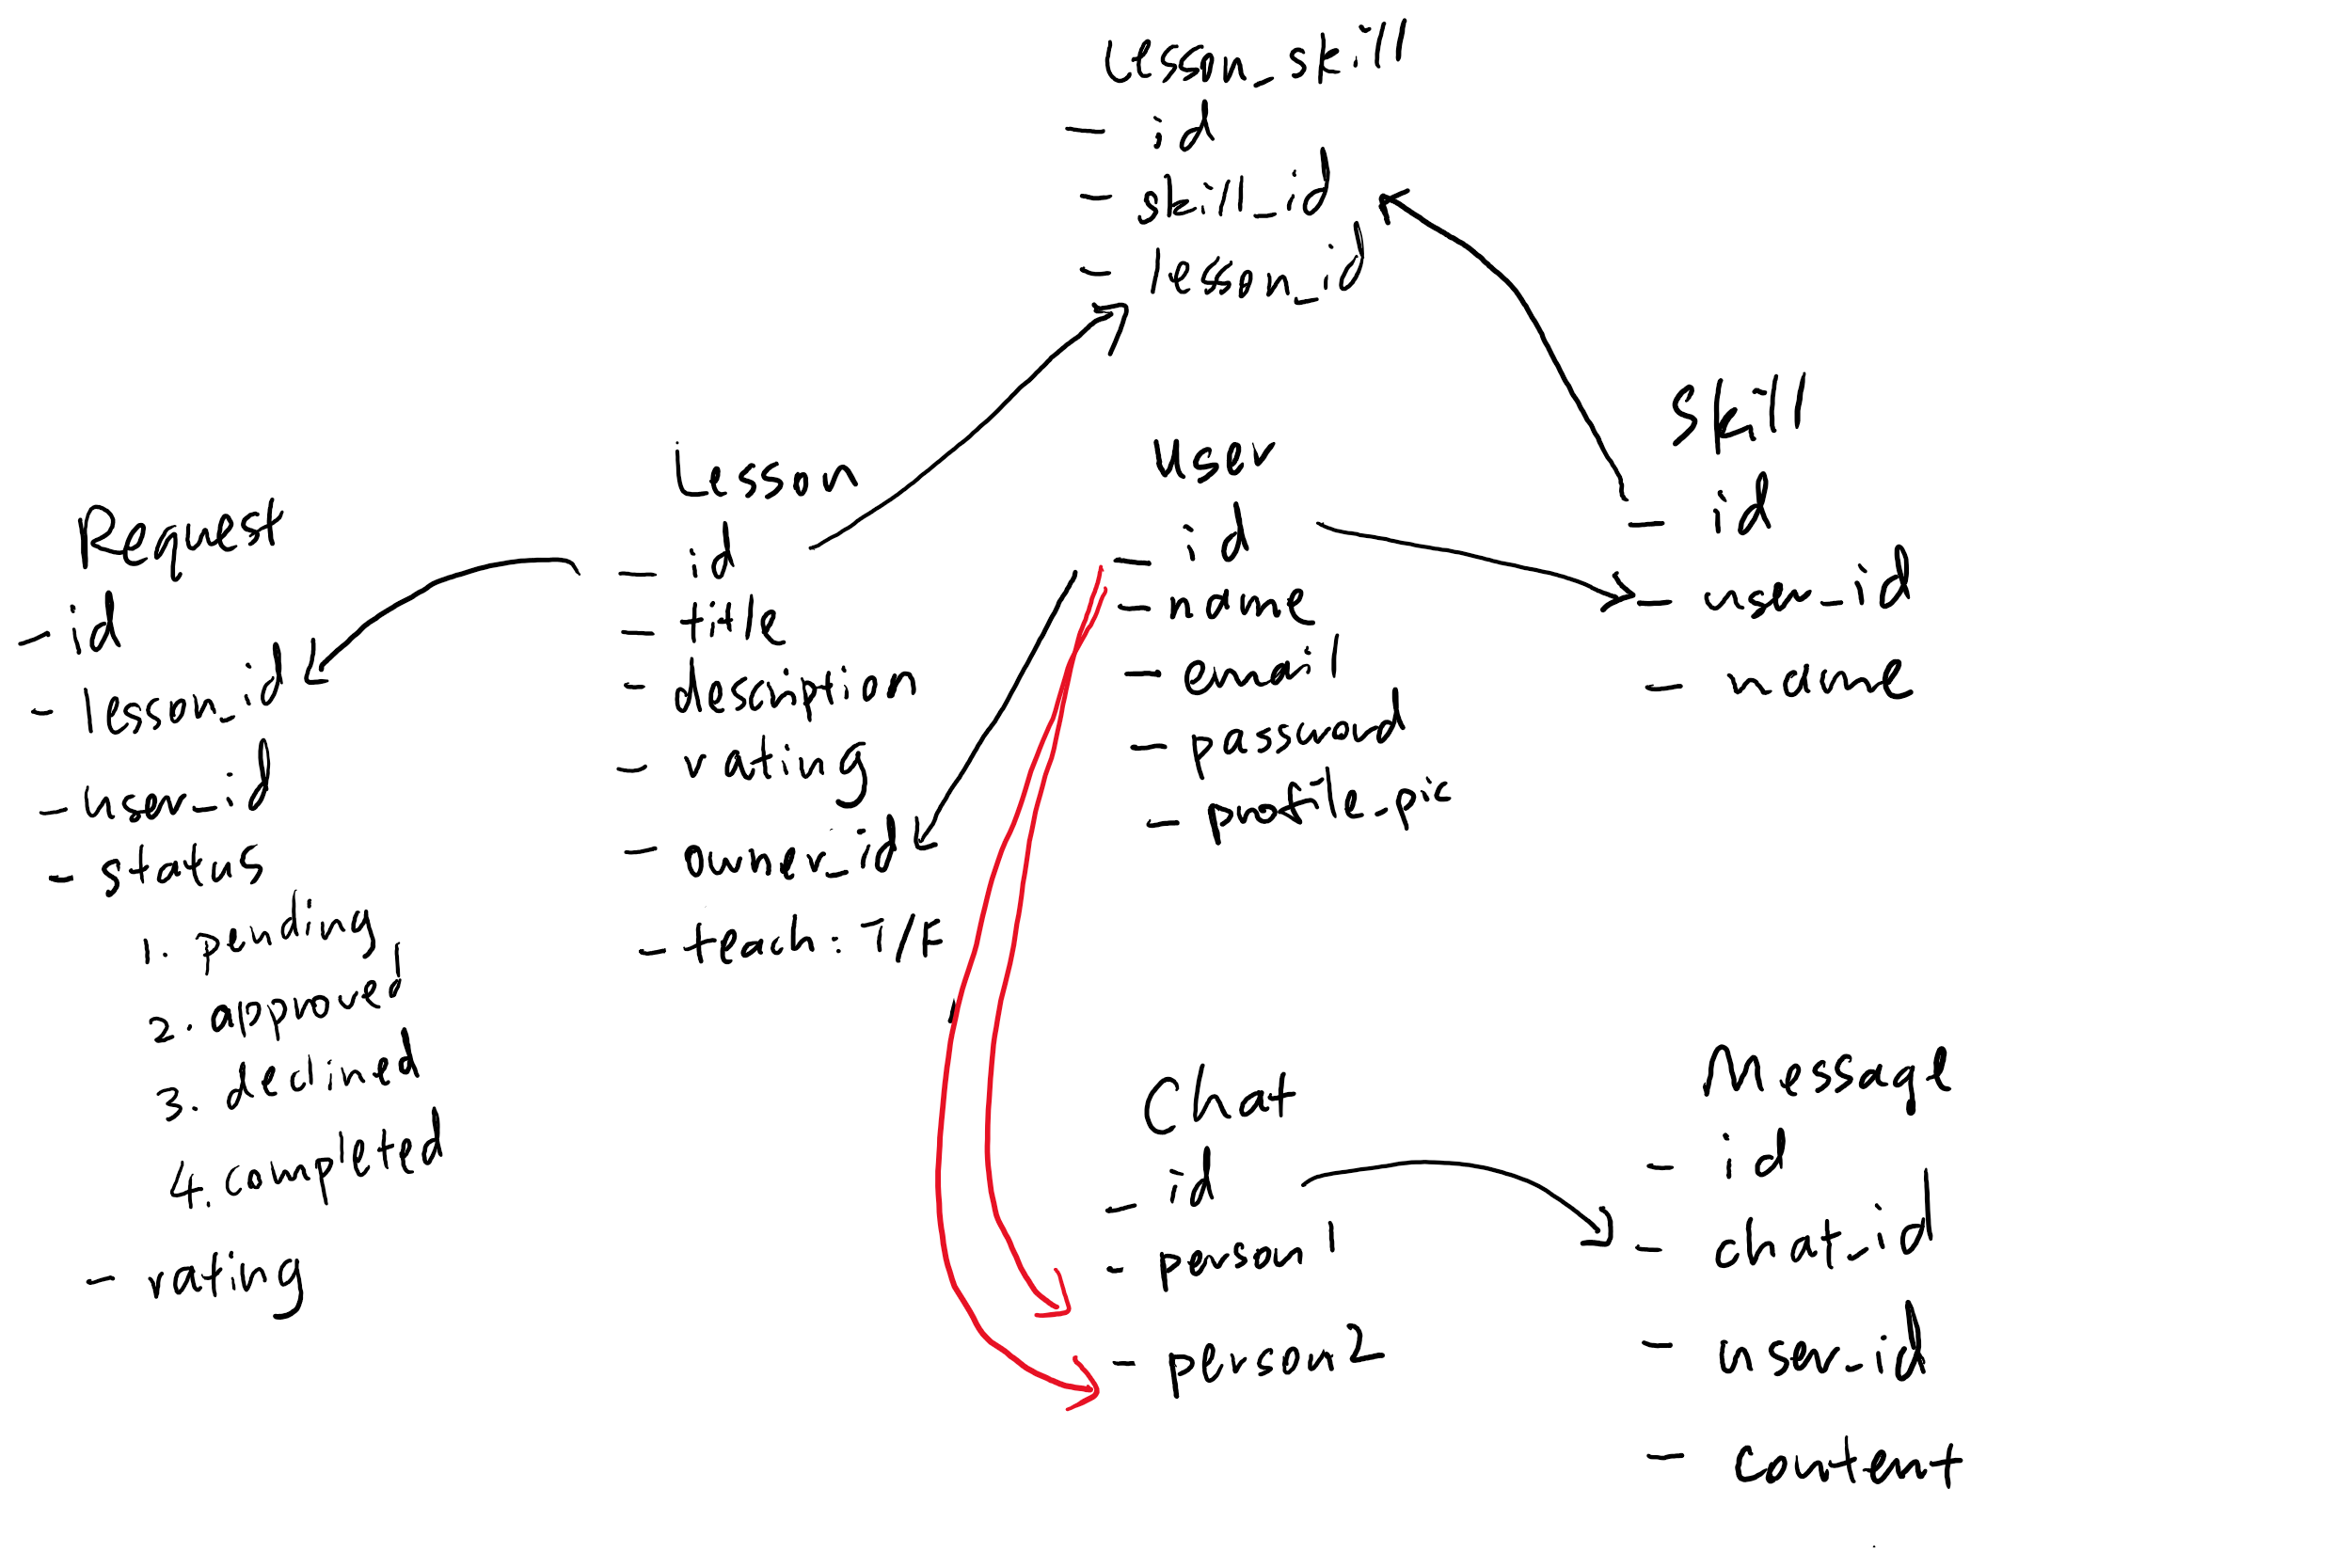 Lesson_skill
- id
- skill_id
- lesson_id
Request
- id
- lesson_id
- user_id
- status
1. pending
2. approved
3. declined
4. completed
- rating
Lesson
- id
- title
- description
- rating
- owner_id
- teach: T/F
User
- id
- name
- email
- password
- profile_pic
Skill
- id
- user_id
- name
Chat
- id
- person1
- person2
Message
- id
- chat_id
- user_id
- content